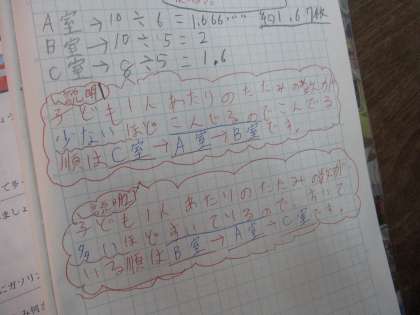 A室→10÷6=1.666… 約1.67枚
B室→10÷5=2
C室→8÷5=1.6
説明
子ども1人あたりのたたみの数が
少ないほどこんでるのでこんでる
順はC室→A室→B室です。
説明
子ども1人あたりのたたみの数が
多いほどすいているので、すいて
いる順はB室→A室→C室です。